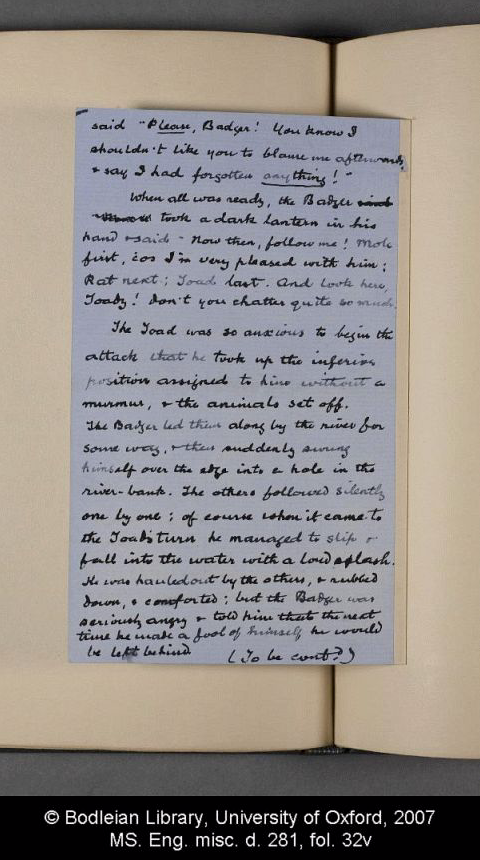 said "Please, Badger! You know I
shouldn't like you to blame me afterwards,
& say I had forgotten anything!"
When all was ready, the Badger
took a dark lantern in his
hand & said - Now then, follow me! Mole
first, 'cos I'm very pleased with him;
Rat next; Toad last. And look here,
Toady! don't you chatter quite so much.
The Toad was so anxious to begin the
attack that he took up the inferior
position assigned to him without a
murmur, & the animals set off.
The Badger led them along by the river for
some way, & then suddenly swung
himself over the edge into a hole in the
river-bank. The others followed silently
one by one; of course when it came to
the Toad's turn he managed to slip &
fall into the water with a loud splash.
He was hauled out by the others, & rubbed
down, & comforted; but the Badger was
seriously angry & told him that the next
time he made a fool of himself he would
be left behind.
(To be cont?)
© Bodleian Library, University of Oxford, 2007
MS. Eng. misc. d. 281, fol. 32v